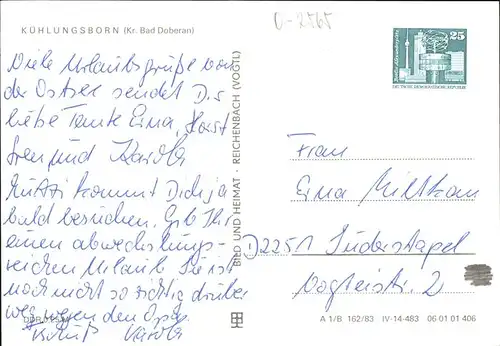 KÜHLUNGSBORN (Kr. Bad Doberan)
U-2565
25
DEUTSCHE DEMOKRATISCHE REPUBLIK
Viele Urlaubsgrüße von
der Ostsee sendet Dir
liebe Tante Erna, Horst
und Karola
Mutti kommt Dich ja
bald besuchen. Gib Ihr
einen abwechslungs-
reichen Urlaub. Sie ist
noch nicht so richtig drüber
weg wegen den Opa.
Gruß Karola
BILD UND HEIMAT · REICHENBACH (VOGTL)
Frau
Erna
D 2251 Süderstapel
Vogteistr. 2
A 1/B 162/83 IV-14-483 06 01 01 406